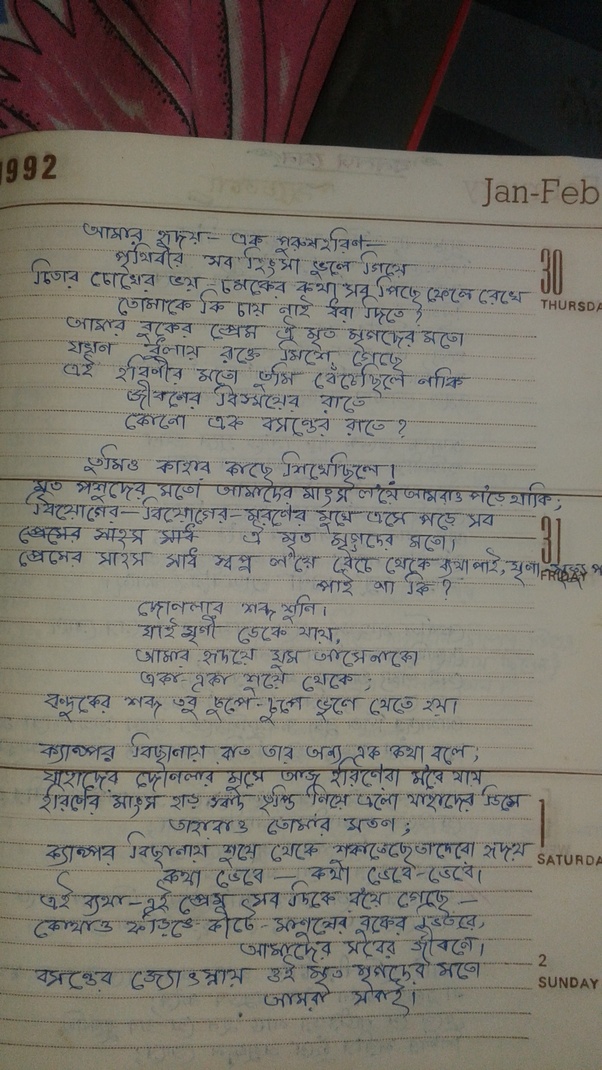 1992
Jan-Feb
আমার হৃদয় – এক পুরুষহরিণ –
পৃথিবীর সব হিংসা ভুলে গিয়ে
চিতার চোখের ভয় – চমকের কথা সব পিছে ফেলে রেখে
তোমাকে কি চায় নাই ধরা দিতে?
আমার বুকের প্রেম ঐ মৃত মৃগদের মতো
যখন ধুলায় রক্তে মিশে গেছে
এই হরিণীর মতো তুমি বেঁচেছিলে নাকি
জীবনের বিস্ময়ের রাতে
কোনো এক বসন্তের রাতে?
তুমিও কাহার কাছে শিখেছিলে!
মৃত পশুদের মতো আমাদের মাংস ল'য়ে আমরাও প'ড়ে থাকি;
বিয়োগের – বিয়োগের – মরণের মুখে এসে পড়ে সব
প্রেমের সাহস সাধ ঐ মৃত মৃগদের মতো।
প্রেমের সাহস সাধ স্বপ্ন ল'য়ে বেঁচে থেকে ব্যথা পাই, ঘৃণা
পাই না কি?
দোনলার শব্দ শুনি।
ঘাইমৃগী ডেকে যায়,
আমার হৃদয়ে ঘুম আসেনাকো
একা-একা শুয়ে থেকে;
বন্দুকের শব্দ তবু চুপে-চুপে ভুলে যেতে হয়।
ক্যাম্পের বিছানায় রাত তার অন্য এক কথা বলে;
যাহাদের দোনলার মুখে আজ হরিণেরা ম'রে যায়
হরিণের মাংস হাড় স্বাদ তৃপ্তি নিয়ে এলো যাহাদের ডিশে
তাহারাও তোমার মতন;
ক্যাম্পের বিছানায় শুয়ে থেকে শুকাতেছে তাদেরো হৃদয়
কথা ভেবে – কথা ভেবে-ভেবে।
এই ব্যথা – এই প্রেম সব দিকে র'য়ে গেছে –
কোথাও ফড়িঙে-কীটে – মানুষের বুকের ভিতরে,
আমাদের সবের জীবনে।
বসন্তের জ্যোৎস্নায় ওই মৃত মৃগদের মতো
আমরা সবাই।
30
THURSDA
31
FRIDAY
1
SATURDA
2
SUNDAY